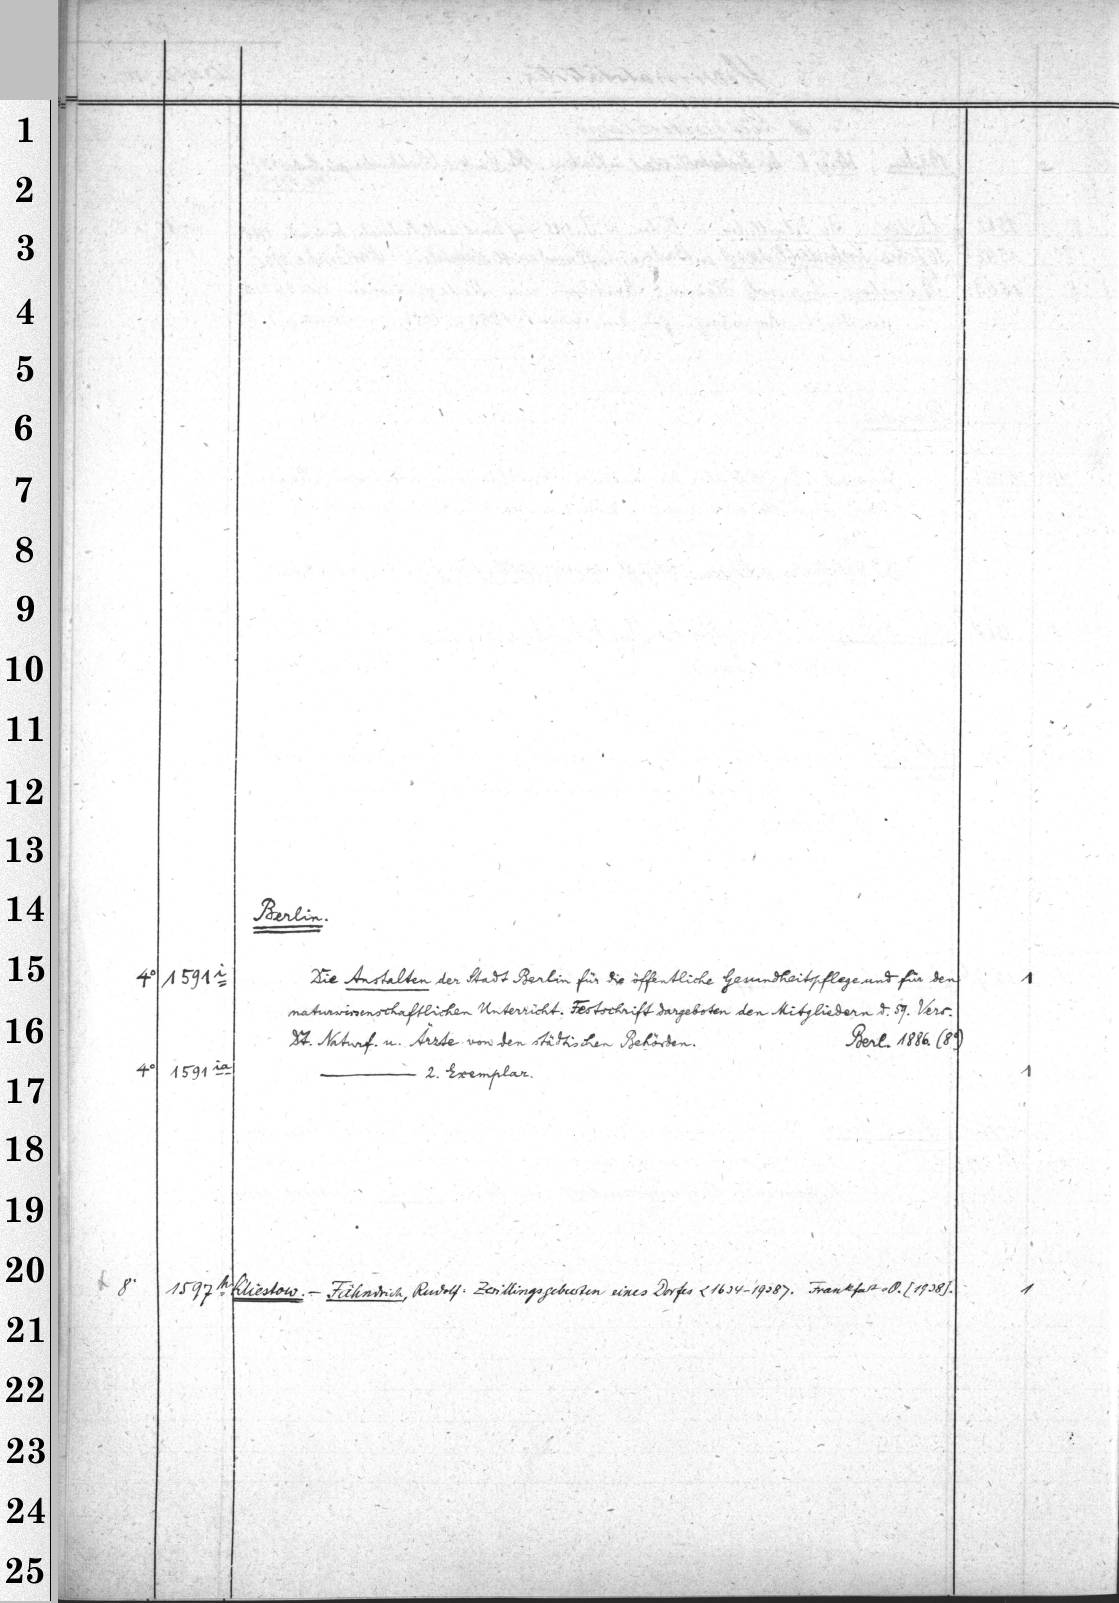 1
2
3
4
5
6
7
8
9
10
11
12
13
14
Berlin.
15
4° 1591 i Die Anstalten der Stadt Berlin für die öffentliche Gesundheitspflege und für den 1
naturwissenschaftlichen Unterricht. Festschrift dargeboten den Mitgliedern d. 59. Vers.
16
Dt. Naturf. u. Ärzte von den städtischen Behörden. Berl. 1886. (8°)
4° 1591 ia 2. Exemplar. 1
17
18
19
20
8° 1597 h Kliestow. – Fähndrich, Rudolf: Zwillingsgeburten eines Dorfes <1634–1938>. Frankfurt-O. [1938]. 1
21
22
23
24
25